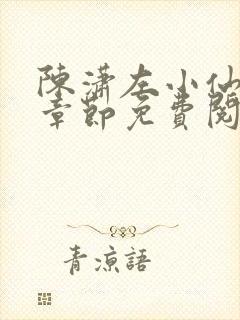 陳瀟左小仙
章節免費閱
青涼語